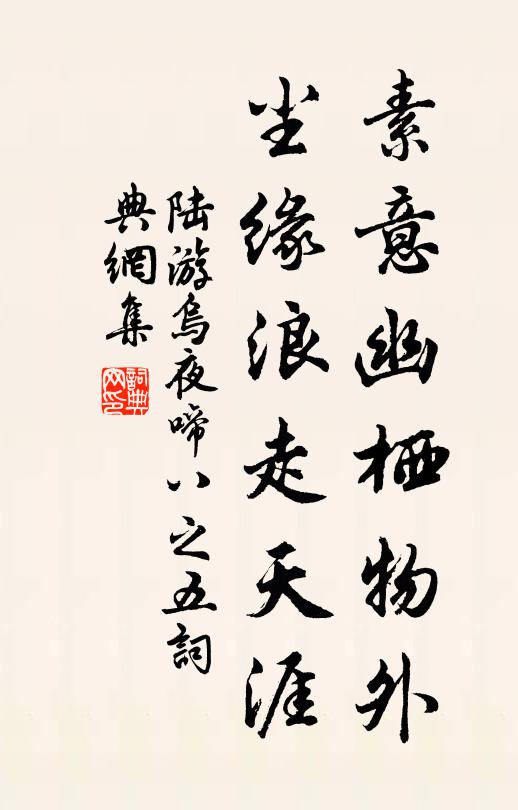 素意幽栖物外
尘缘浪走天涯
陆游乌夜啼八之五詞
典網集
詞典網印